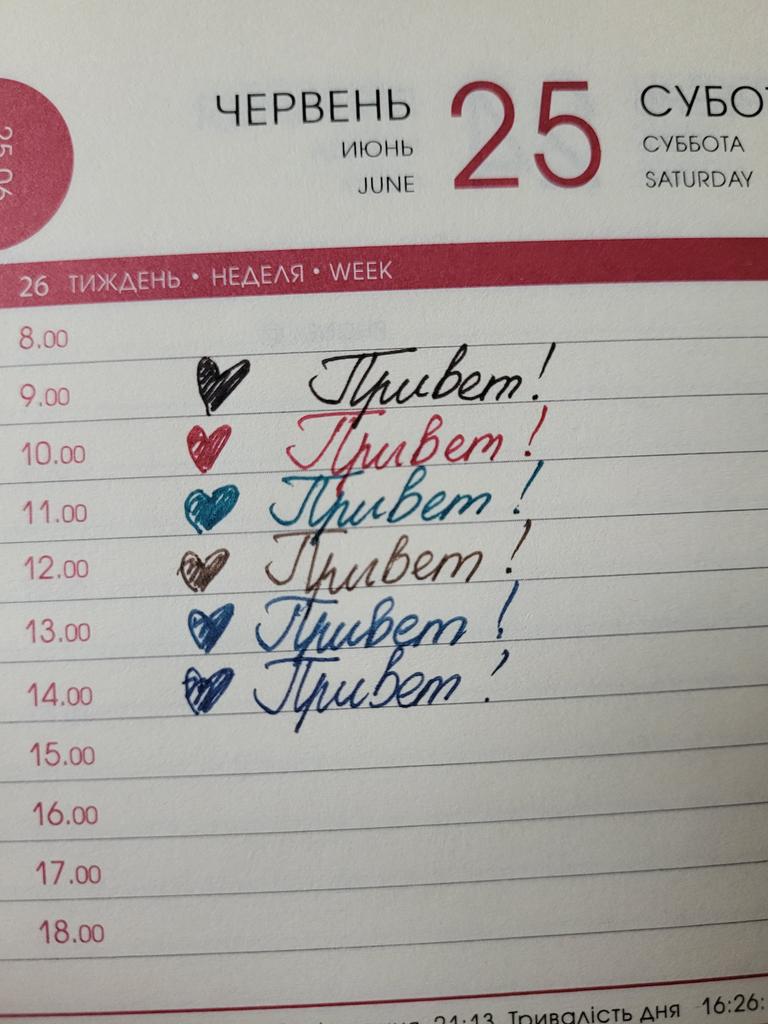 25.06
ЧЕРВЕНЬ 25 СУБО
ИЮНЬ СУББОТА
JUNE SATURDAY
26 ТИЖДЕНЬ • НЕДЕЛЯ • WEEK
8.00
9.00 Привет!
10.00 Привет!
11.00 Привет!
12.00 Привет!
13.00 Привет!
14.00 Привет!
15.00
16.00
17.00
18.00
21:13 Тривалість дня 16:26: